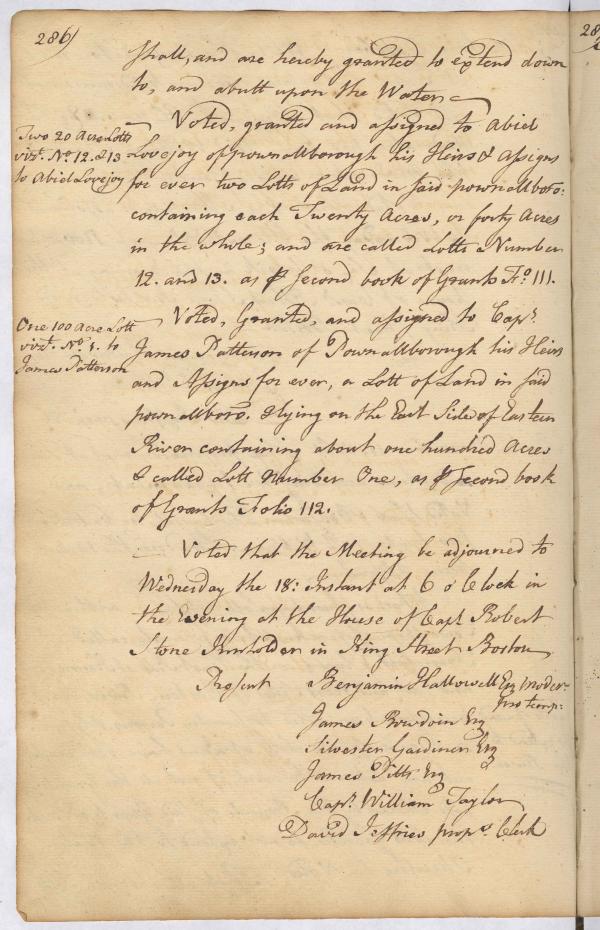 286
Shall, and are hereby granted to extend down
to, and abutt upon the Water
Two 20 Acre Lotts
vizt. No. 12. & 13
to Abiel Lovejoy
Voted, granted and assigned to Abiel
Lovejoy of pownallborough his Heirs & Assigns
for ever two Lotts of Land in said pownallboro:
containing each Twenty Acres, or forty Acres
in the whole; and are called Lotts Number
12. and 13. as ⅌ Second book of Grants Fo. 111.
One 100 Acre Lott
vizt. No. 1. to
James Patterson
Voted, Granted, and assigned to Capt.
James Patterson of Pownallborough his Heirs
and Assigns for ever, a Lott of Land in said
pownallboro. & lying on the East Side of Eastern
River containing about one hundred Acres
& called Lott Number One, as ⅌ Second book
of Grants Folio 112.
Voted that the Meeting be adjourned to
Wednesday the 18: Instant at 6 o'Clock in
the Evening at the House of Capt. Robert
Stone Innholder in King Street Boston
Present Benjamin Hallowell Esq Moder.
pro temp:
James Bowdoin Esq
Silvester Gardiner Esq
James Pitts Esq
Capt. William Taylor
David Jeffries props. Clerk